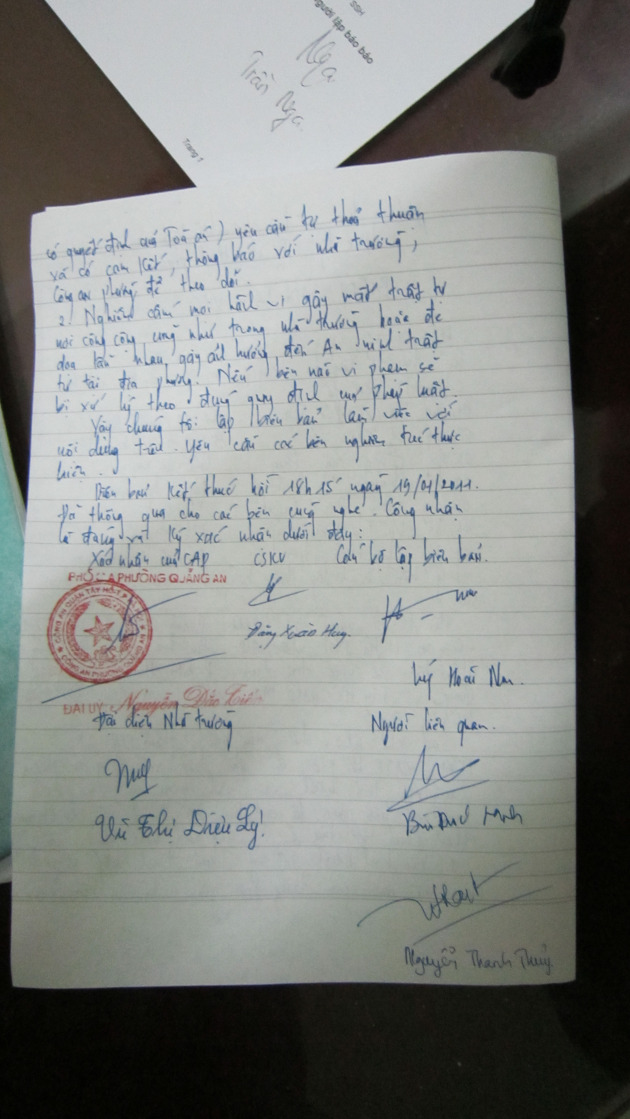 SSH
người lập báo báo
Nga
Trần Nga
Trang 1
có quyết định của Toà án) yêu cầu tự thoả thuận
và có cam kết, thông báo với nhà trường,
Công an phường để theo dõi.
2. Nghiêm cấm mọi hành vi gây mất trật tự
nơi công cộng cũng như trong nhà trường hoặc đe
doạ lẫn nhau, gây ảnh hưởng đến An ninh trật
tự tại địa phương. Nếu bên nào vi phạm sẽ
bị xử lý theo đúng quy định của pháp luật.
Vậy chúng tôi lập biên bản làm việc với
nội dung trên. Yêu cầu các bên nghiêm túc thực
hiện.
Biên bản kết thúc hồi 18h15 ngày 19/01/2011.
Đã thông qua cho các bên cùng nghe. Công nhận
là đúng và ký xác nhận dưới đây:
Xác nhận của CAP CSKV Cán bộ lập biên bản.
PHÓ CA PHƯỜNG QUẢNG AN
CÔNG AN QUẬN TÂY HỒ
CÔNG AN PHƯỜNG QUẢNG AN
Đặng Xuân
Lý Hoài Nam.
ĐẠI UÝ Nguyễn Đắc Tiến
Đại diện Nhà trường Người liên quan.
Vũ Thị Diệu Ly!
Bùi Đức Mạnh
Nguyễn Thanh Thuý